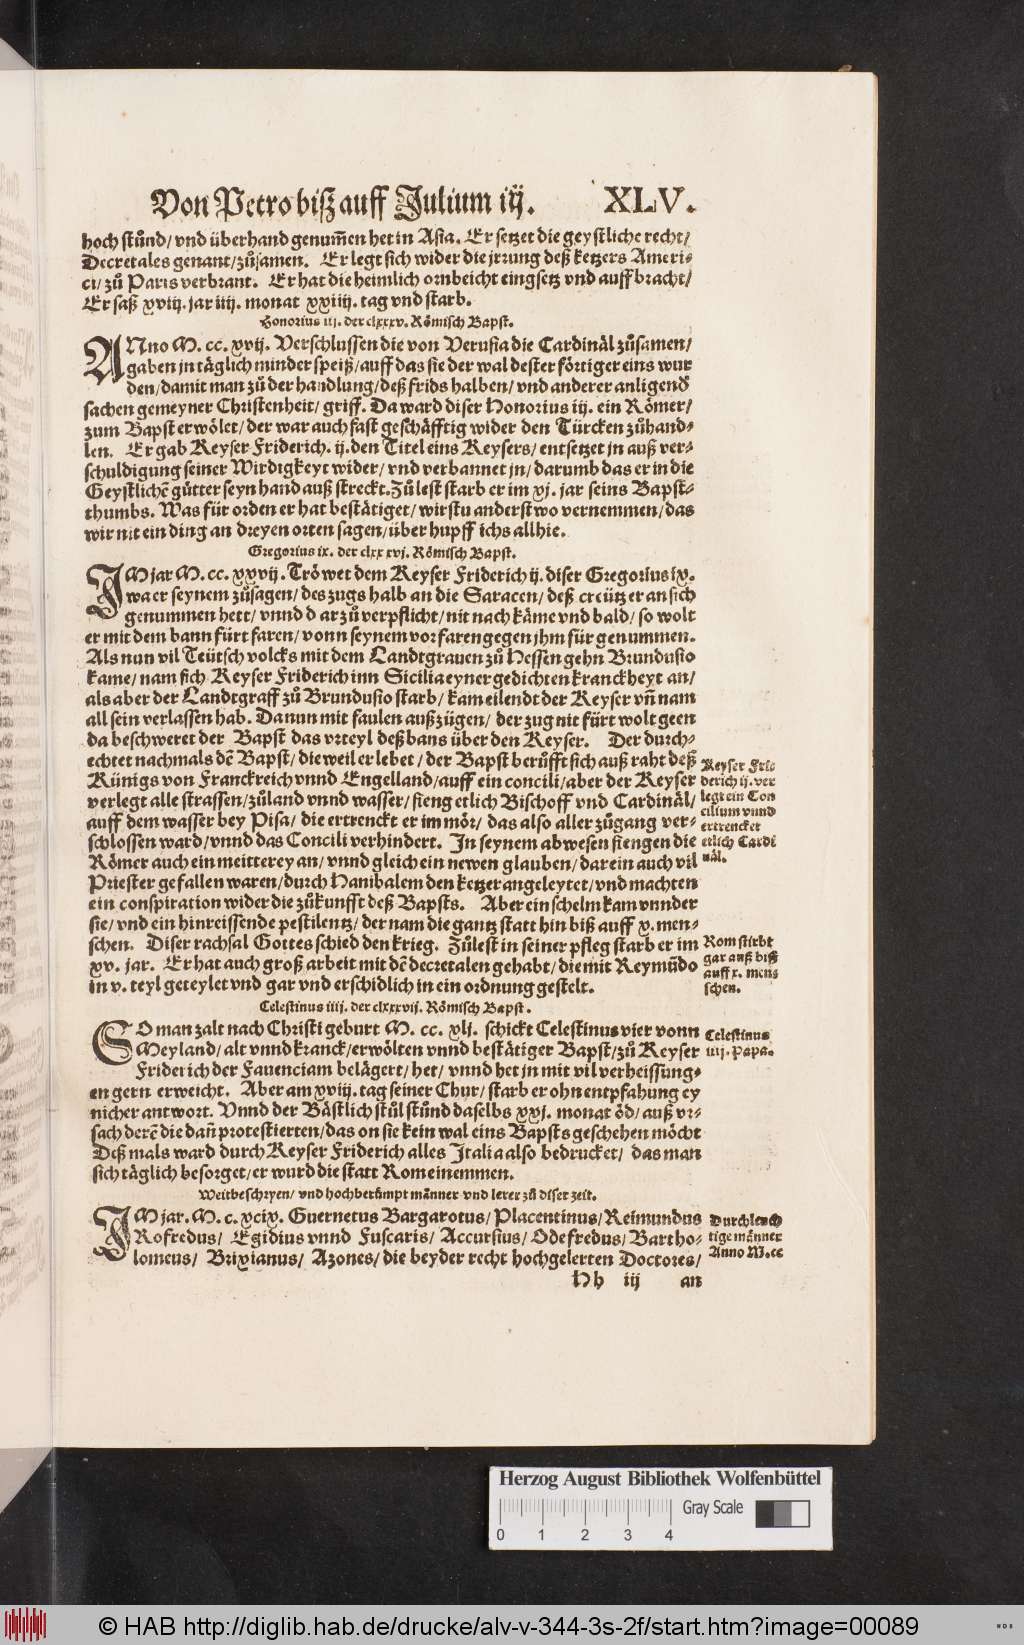 Von Petro biß auff Julium iij. XLV.
hoch stůnd/ vnd überhand genum̃en het in Asia. Er setzet die geystliche recht/
Decretales genant/ zůsamen. Er legt sich wider die jrrung deß ketzers Ameri-
ci/ zů Paris verbrant. Er hat die heimlich ornbeicht eingsetz vnd auff bracht/
Er saß xviij. jar iiij. monat xxiiij. tag vnd starb.
Honorius iij. der clxxxv. Römisch Bapst.
ANno M. cc. xvij. Verschlussen die von Perusia die Cardinäl zůsamen/
gaben jn täglich minder speiß/ auff das sie der wal dester förtiger eins wur
den/ damit man zů der handlung/ deß frids halben/ vnd anderer anligend
sachen gemeyner Christenheit/ griff. Da ward diser Honorius iij. ein Römer/
zum Bapst erwölet/ der war auch fast geschäfftig wider den Türcken zůhand-
len. Er gab Keyser Friderich. ij. den Titel eins Keysers/ entsetzet jn auß ver-
schuldigung seiner Wirdigkeyt wider/ vnd verbannet jn/ darumb das er in die
Geystlichẽ gůtter seyn hand auß streckt. Zů lest starb er im xj. jar seins Bapst-
thumbs. Was für orden er hat bestätiget/ wirstu anderstwo vernemmen/ das
wir nit ein ding an dreyen orten sagen/ über hupff ichs allhie.
Gregorius ix. der clxxxvj. Römisch Bapst.
IM jar M. cc. xxvij. Tröwet dem Keyser Friderich ij. diser Gregorius ix.
wa er seynem zůsagen/ des zugs halb an die Saracen/ deß creütz er an sich
genummen hett/ vnnd darzů verpflicht/ nit nach käme vnd bald/ so wolt
er mit dem bann fürt faren/ vonn seynem vorfaren gegen jhm für genummen.
Als nun vil Teütsch volcks mit dem Landtgrauen zů Hessen gehn Brundusio
kame/ nam sich Keyser Friderich inn Sicilia eyner gedichten kranckheyt an/
als aber der Landtgraff zů Brundusio starb/ kam eilendt der Keyser vñ nam
all sein verlassen hab. Da nun mit faulen außzügen/ der zug nit fürt wolt geen
da beschweret der Bapst das vrteyl deß bans über den Keyser. Der durch-
echtet nachmals dẽ Bapst/ die weil er lebet/ der Bapst berůfft sich auß raht deß
Künigs von Franckreich vnnd Engelland/ auff ein concili/ aber der Keyser
verlegt alle strassen/ zůland vnnd wasser/ fieng etlich Bischoff vnd Cardinäl/
auff dem wasser bey Pisa/ die ertrenckt er im mör/ das also aller zůgang ver-
schlossen ward/ vnnd das Concili verhindert. In seynem abwesen fiengen die
Römer auch ein meitterey an/ vnnd gleich ein newen glauben/ darein auch vil
Priester gefallen waren/ durch Hanibalem den ketzer angeleytet/ vnd machten
ein conspiration wider die zůkunfft deß Bapsts. Aber ein schelm kam vnnder
sie/ vnd ein hinreissende pestilentz/ der nam die gantz statt hin biß auff x. men-
schen. Diser rachsal Gottes schied den krieg. Zů lest in seiner pfleg starb er im
xv. jar. Er hat auch groß arbeit mit dẽ decretalen gehabt/ die mit Reymũdo
in v. teyl geteylet vnd gar vnd erschidlich in ein ordnung gestelt.
Keyser Fri-
derich ij. ver
legt ein Con
cilium vnnd
ertrencket
etlich Cardi
näl.
Rom stirbt
gar auß biß
auff x. men-
schen.
Celestinus iiij. der clxxxvij. Römisch Bapst.
SO man zalt nach Christi geburt M. cc. xlj. schickt Celestinus vier vonn
Meyland/ alt vnnd kranck/ erwölten vnnd bestätiger Bapst/ zů Keyser
Friderich der Fauenciam belägert/ het/ vnnd het jn mit vil verheissung-
en gern erweicht. Aber am xviij. tag seiner Chur/ starb er ohn entpfahung ey
nicher antwort. Vnnd der Bästlich stůl stůnd daselbs xxj. monat öd/ auß vr-
sach derẽ die dañ protestierten/ das on sie kein wal eins Bapsts geschehen möcht
Deß mals ward durch Keyser Friderich alles Italia also bedrucket/ das man
sich täglich besorget/ er wurd die statt Rom einemmen.
Celestinus
iiij. Papa.
Weitbeschryen/ vnd hochberůmpt männer vnd lerer zů diser zeit.
IM jar. M. c. xcix. Guernetus Bargarotus/ Placentinus/ Reimundus
Rofredus/ Egidius vnnd Fuscaris/ Accursius/ Odefredus/ Bartho-
lomeus/ Brixianus/ Azones/ die beyder recht hochgelerten Doctores/
Durchleuch
tige männer
Anno M. cc
Hh iij an
Herzog August Bibliothek Wolfenbüttel
Gray Scale
0 1 2 3 4
© HAB http://diglib.hab.de/drucke/alv-v-344-3s-2f/start.htm?image=00089